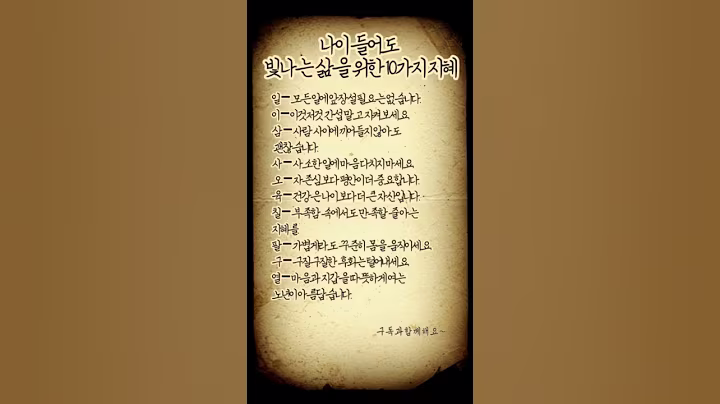 나이 들어도
빛나는 삶을 위한 10가지 지혜
일 - 모든 일에 앞장설 필요는 없습니다.
이 - 이것저것 간섭 말고 지켜보세요.
삼 - 사람 사이에 끼어들지 않아도
괜찮습니다.
사 - 사소한 일에 마음 다치지 마세요.
오 - 자존심보다 평안이 더 중요합니다.
육 - 건강은 나이보다 더 큰 자산입니다.
칠 - 부족함 속에서도 만족할 줄 아는
지혜를
팔 - 가볍게라도 꾸준히 몸을 움직이세요.
구 - 구질구질한 후회는 털어내세요.
열 - 마음과 지갑을 따뜻하게 여는
노년이 아름답습니다.
구독과 함께해요~